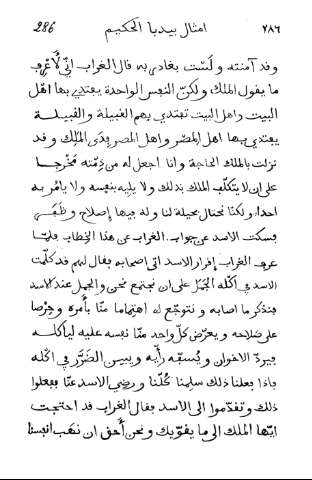 ٢٨٦ امثال بيدبا الحكيم 286
وقد آمنته ولست بغادر به قال الغراب انّي لأعرف
ما يقول الملك ولكنّ النفس الواحدة يفتدي بها اهل
البيت واهل البيت تفتدي بهم القبيلة والقبيلة
يفتدي بها اهل المصر واهل المصر فدى الملك وقد
نزلت بالملك الحاجة وانا اجعل له من ذمّته مخرجا
على ان لا يتكلّف الملك بذلك ولا يليه بنفسه ولا يامر به
احدا ولكنّا نحتال بحيلة لنا وله فيها إصلاح وظفر
فسكت الاسد عن جواب الغراب عن هذا الخطاب فلمّا
عرف الغراب إقرار الاسد اتى اصحابه فقال لهم قد كلّمت
الاسد في اكله الجمل على ان نجتمع نحن والجمل عند الاسد
فنذكر ما اصابه ونتوجّع له اهتماما منّا بأمره وحرصا
على صلاحه ويعرض كلّ واحد منّا نفسه عليه لياكله
فيردّ الاخوان ويسفّه رأيه ويبين الضرر في اكله
فاذا فعلنا ذلك سلمنا كلّنا ورضي الاسد عنّا ففعلوا
ذلك وتقدّموا الى الاسد فقال الغراب قد احتجت
ايّها الملك الى ما يقويك ونحن أحق ان نهب انفسنا